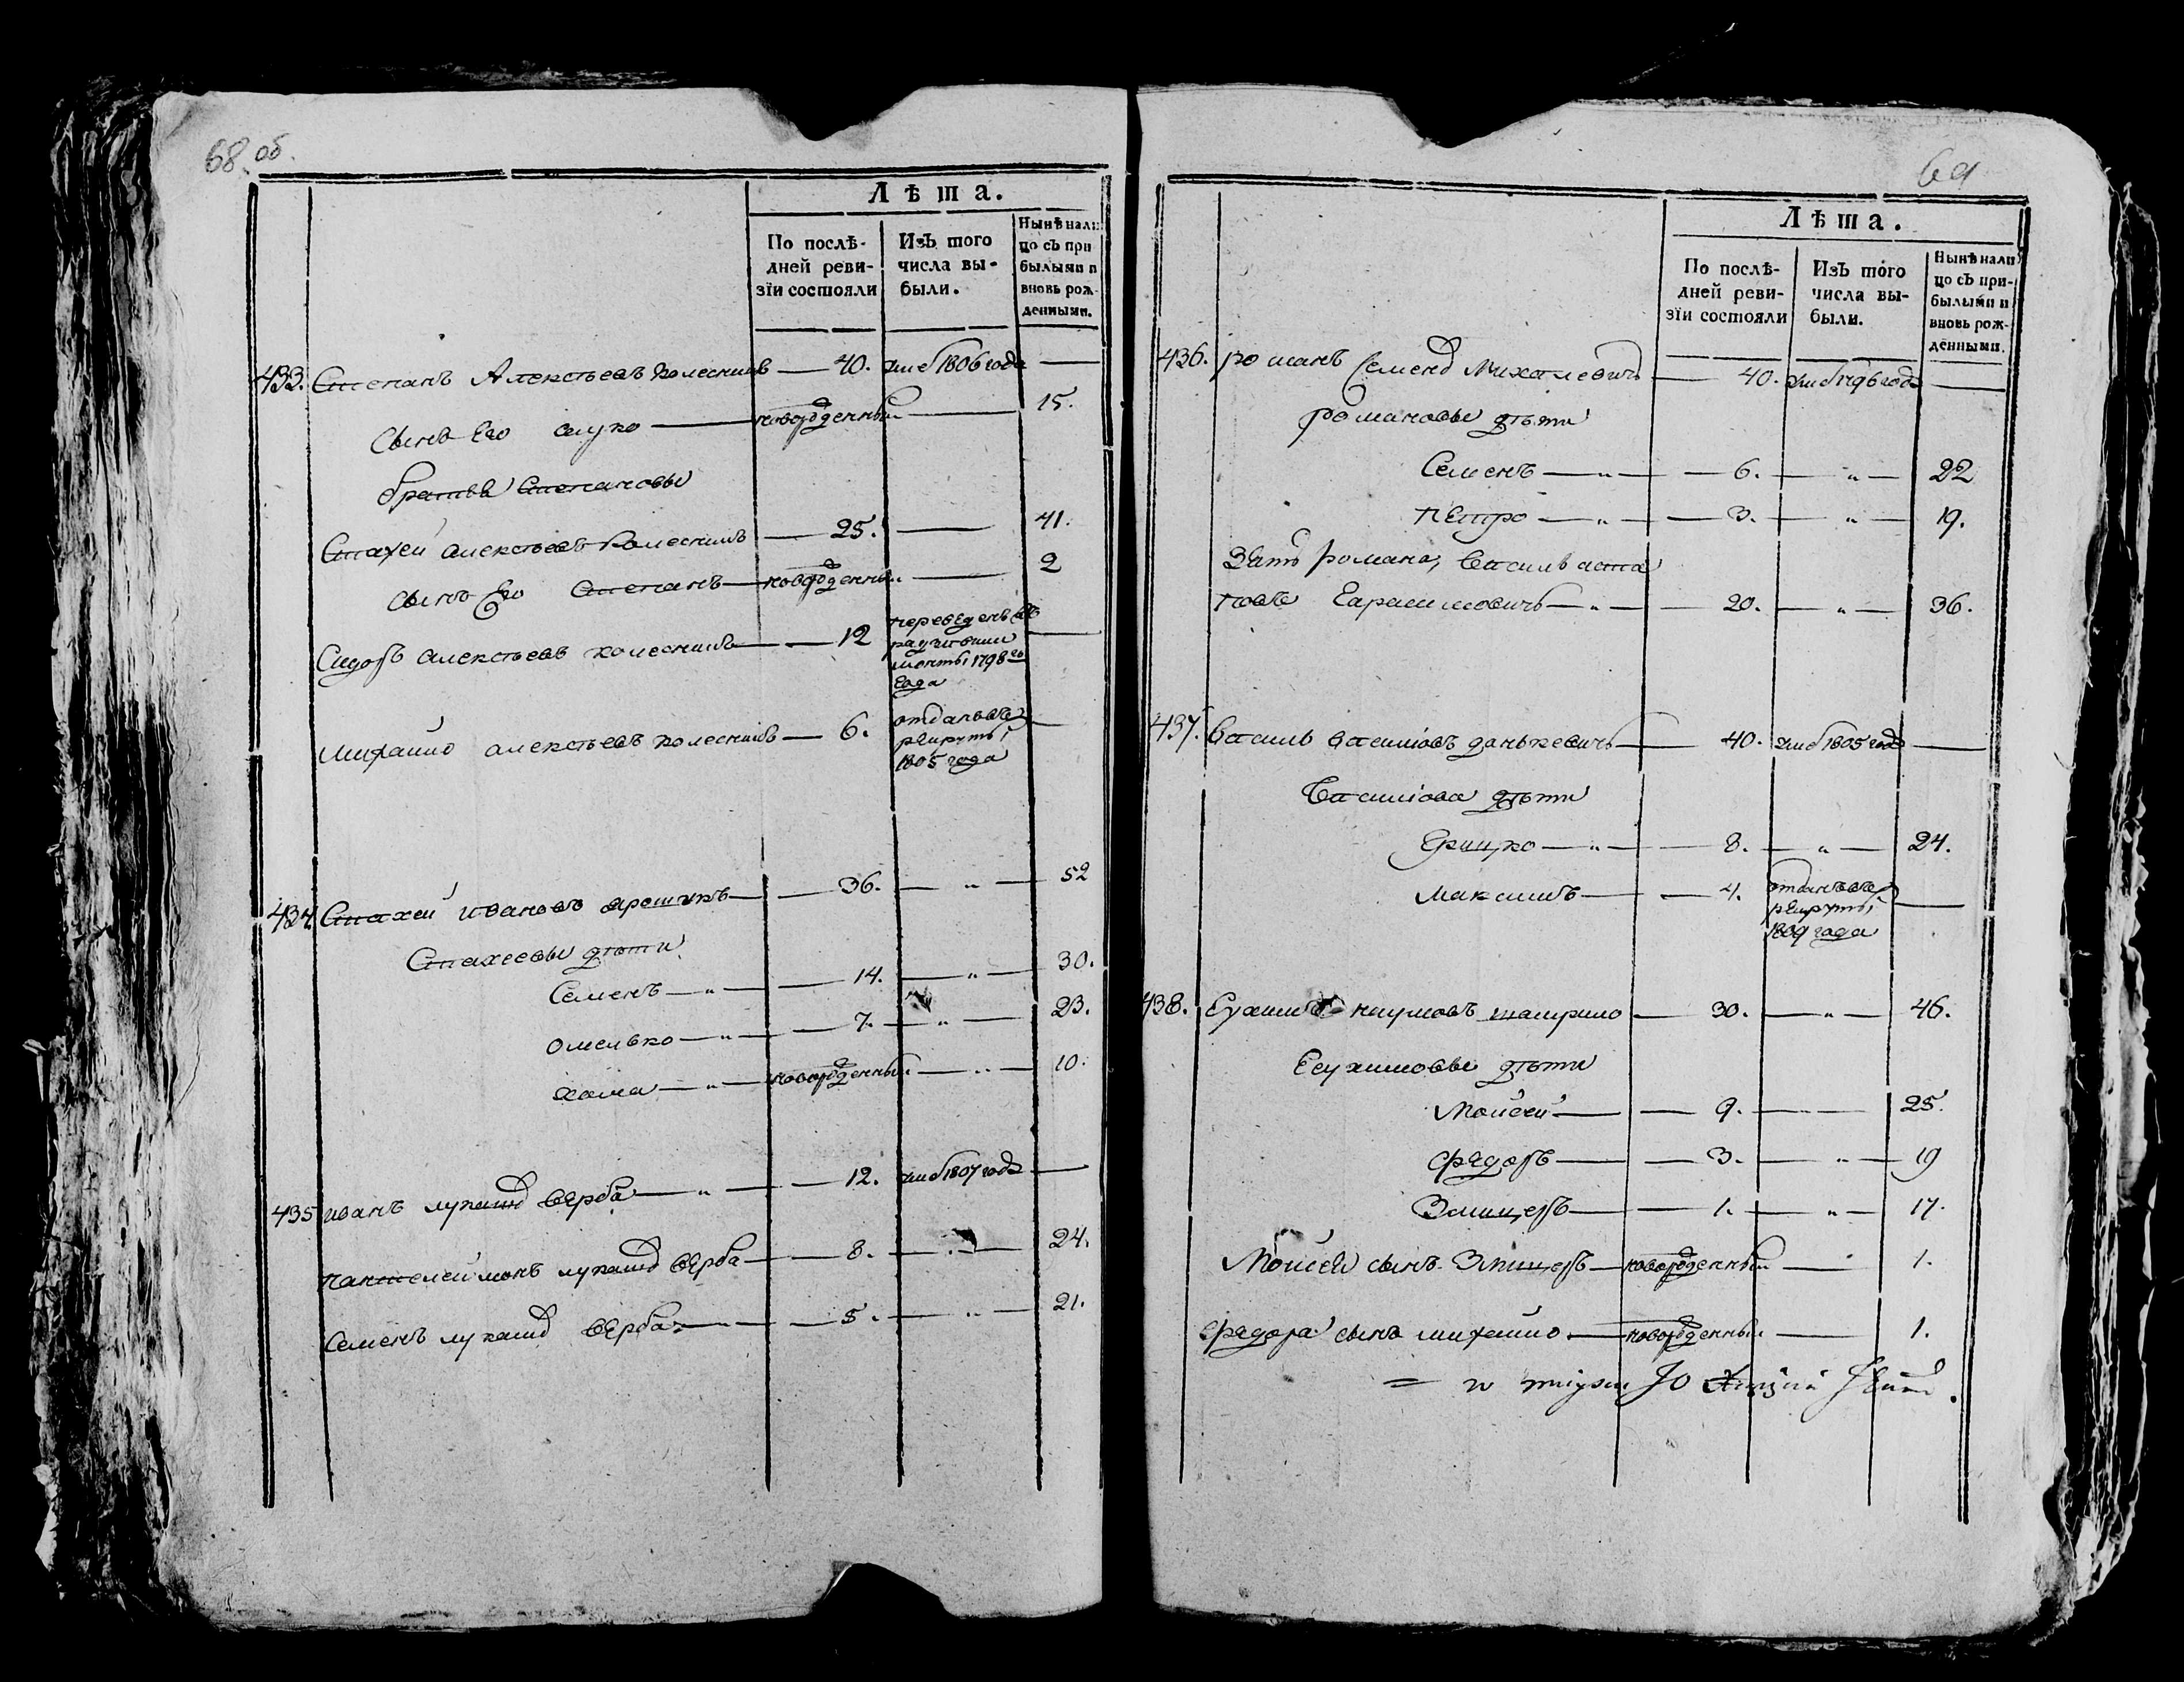 68 об.
Лѣта.
По послѣ-
дней реви-
зїи состояли
Изъ того
числа вы-
были.
Нынѣ нали
цо съ при
былыми и
вновь рож-
денными.
433. Степанъ Алексѣевъ Колесникъ — 40. умеб 1806 года —
Сынъ Его — новорожденный — 15.
братья Степановы
Стахей Алексѣевъ Колесникъ — 25. — 41.
Сынъ Его Степанъ — новорожденный — 2
Сидоръ Алексѣевъ Колесникъ — 12
переведенъ въ
1798 го
года
Михайло Алексѣевъ Колесникъ — 6.
отданъ въ
рекруты
1805 года
434 Стахей Ивановъ — 36. — „ — 52
Стахеевы дѣти
Семенъ — „ — 14. — „ — 30.
Омелько — „ — 7. — „ — 23.
Хома — „ — новорожденный — „ — 10.
435 Иванъ Лукашъ Верба — „ — 12. умеб 1807 года —
Пантелеймонъ Лукашъ Верба — 8. — „ — 24.
Семенъ Лукашъ Верба — 5. — „ — 21.
69
Лѣта.
По послѣ-
дней реви-
зїи состояли
Изъ того
числа вы-
были.
Нынѣ нали
цо съ при-
былыми и
вновь рож-
денными.
436. Романъ Семенъ Михалевичъ — 40. умеб 1796 года —
Романовы дѣти
Семенъ — „ — 6. — „ — 22
Петро — „ — 3. — „ — 19.
Зять Романа, Василь Аста
повъ Гарасимовичъ — „ — 20. — „ — 36.
437. Василь Василіовъ Данькевичъ — 40. умеб 1805 года —
Василіова дѣти
Грицко — „ — 8. — „ — 24.
Максимъ — 4.
отданъ въ
рекруты
1809 года
438. Наумовъ — 30. — „ — 46.
дѣти
Мойсей — 9. — 25.
Федоръ — 3. — „ — 19
1. — „ — 17.
Мойсея сынъ — новорожденный — 1.
Федора сынъ Михайло — новорожденный — 1.